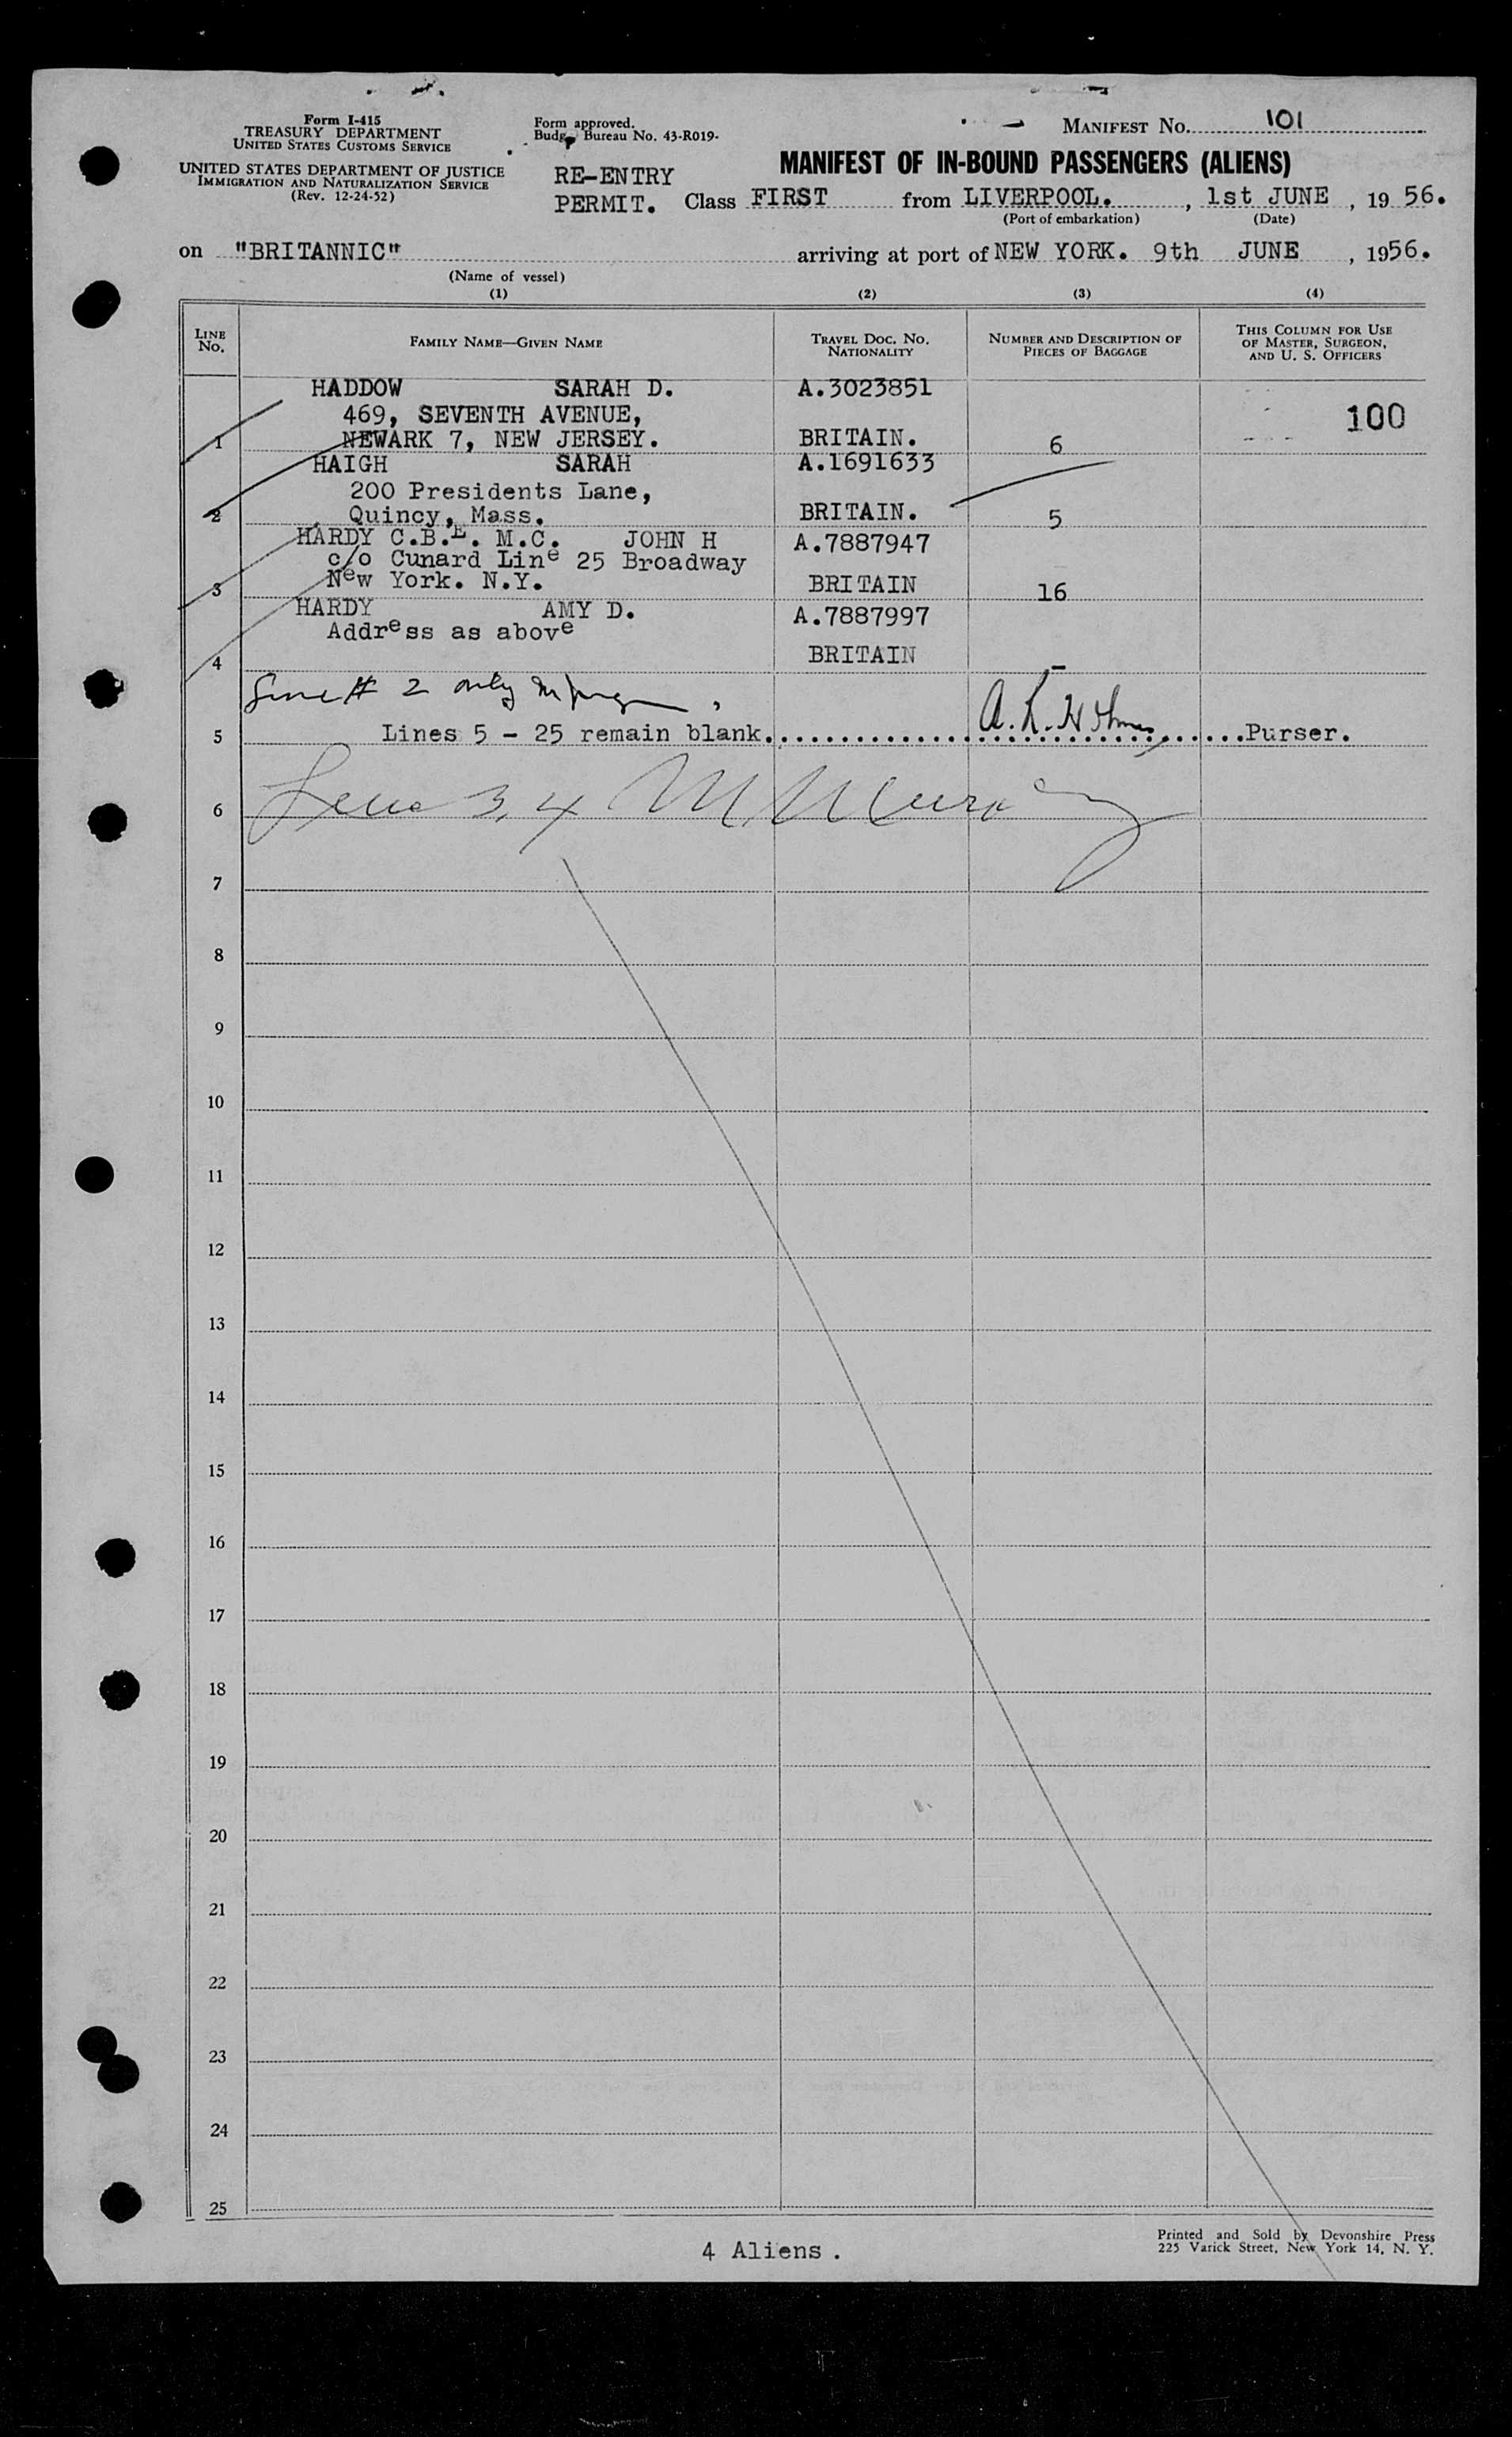 Form I-415
TREASURY DEPARTMENT
UNITED STATES CUSTOMS SERVICE
UNITED STATES DEPARTMENT OF JUSTICE
IMMIGRATION AND NATURALIZATION SERVICE
(Rev. 12-24-52)
Form approved.
Budget Bureau No. 43-R019.
MANIFEST NO. 101
MANIFEST OF IN-BOUND PASSENGERS (ALIENS)
RE-ENTRY
PERMIT. Class FIRST from LIVERPOOL. , 1st JUNE , 19 56.
(Port of embarkation) (Date)
on "BRITANNIC" arriving at port of NEW YORK. 9th JUNE , 1956.
(Name of vessel)
(1) (2) (3) (4)
LINE NO. FAMILY NAME—GIVEN NAME TRAVEL DOC. NO. NATIONALITY NUMBER AND DESCRIPTION OF PIECES OF BAGGAGE THIS COLUMN FOR USE OF MASTER, SURGEON, AND U. S. OFFICERS
HADDOW SARAH D. A.3023851
469, SEVENTH AVENUE, 100
1 NEWARK 7, NEW JERSEY. BRITAIN. 6
HAIGH SARAH A.1691633
200 Presidents Lane,
2 Quincy, Mass. BRITAIN. 5
HARDY C.B.E. M.C. JOHN H A.7887947
c/o Cunard Line 25 Broadway
3 New York. N.Y. BRITAIN 16
HARDY AMY D. A.7887997
Address as above
4 BRITAIN -
Line # 2 only
5 Lines 5 - 25 remain blank. A. L. Purser.
6 Line 3, 4 M
7
8
9
10
11
12
13
14
15
16
17
18
19
20
21
22
23
24
25
4 Aliens.
Printed and Sold by Devonshire Press
225 Varick Street, New York 14, N. Y.